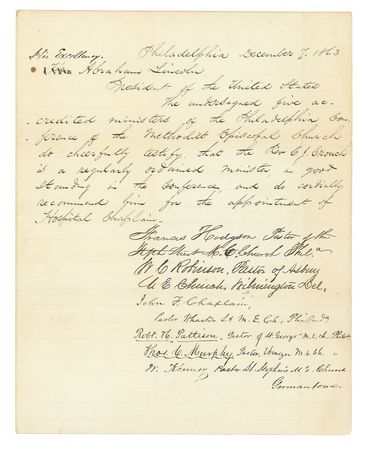 Philadelphia December 7, 1863
His Excellency,
Abraham Lincoln
President of the United States
The undersigned five ac-
credited ministers of the Philadelphia Con-
ference of the Methodist Episcopal Church
do cheerfully testify, that the Rev C. J. Crouch
is a regularly ordained minister, in good
standing in the Conference, and do cordially
recommend him for the appointment of
Hospital Chaplain.
Francis Hodgson Pastor of the
Fifth Street M. E. Church Phila
W. C. Robinson, Pastor of Asbury
M E Church, Wilmington Del.
John F. Chaplain,
Pastor Wharton St M. E. Ch, Philada
Robt. H. Pattison, Pastor of St. George M. E. ch.
Thos. C. Murphy, Pastor, M. E. Ch. "
Pastor St. Stephen's M. E. Church
Germantown.